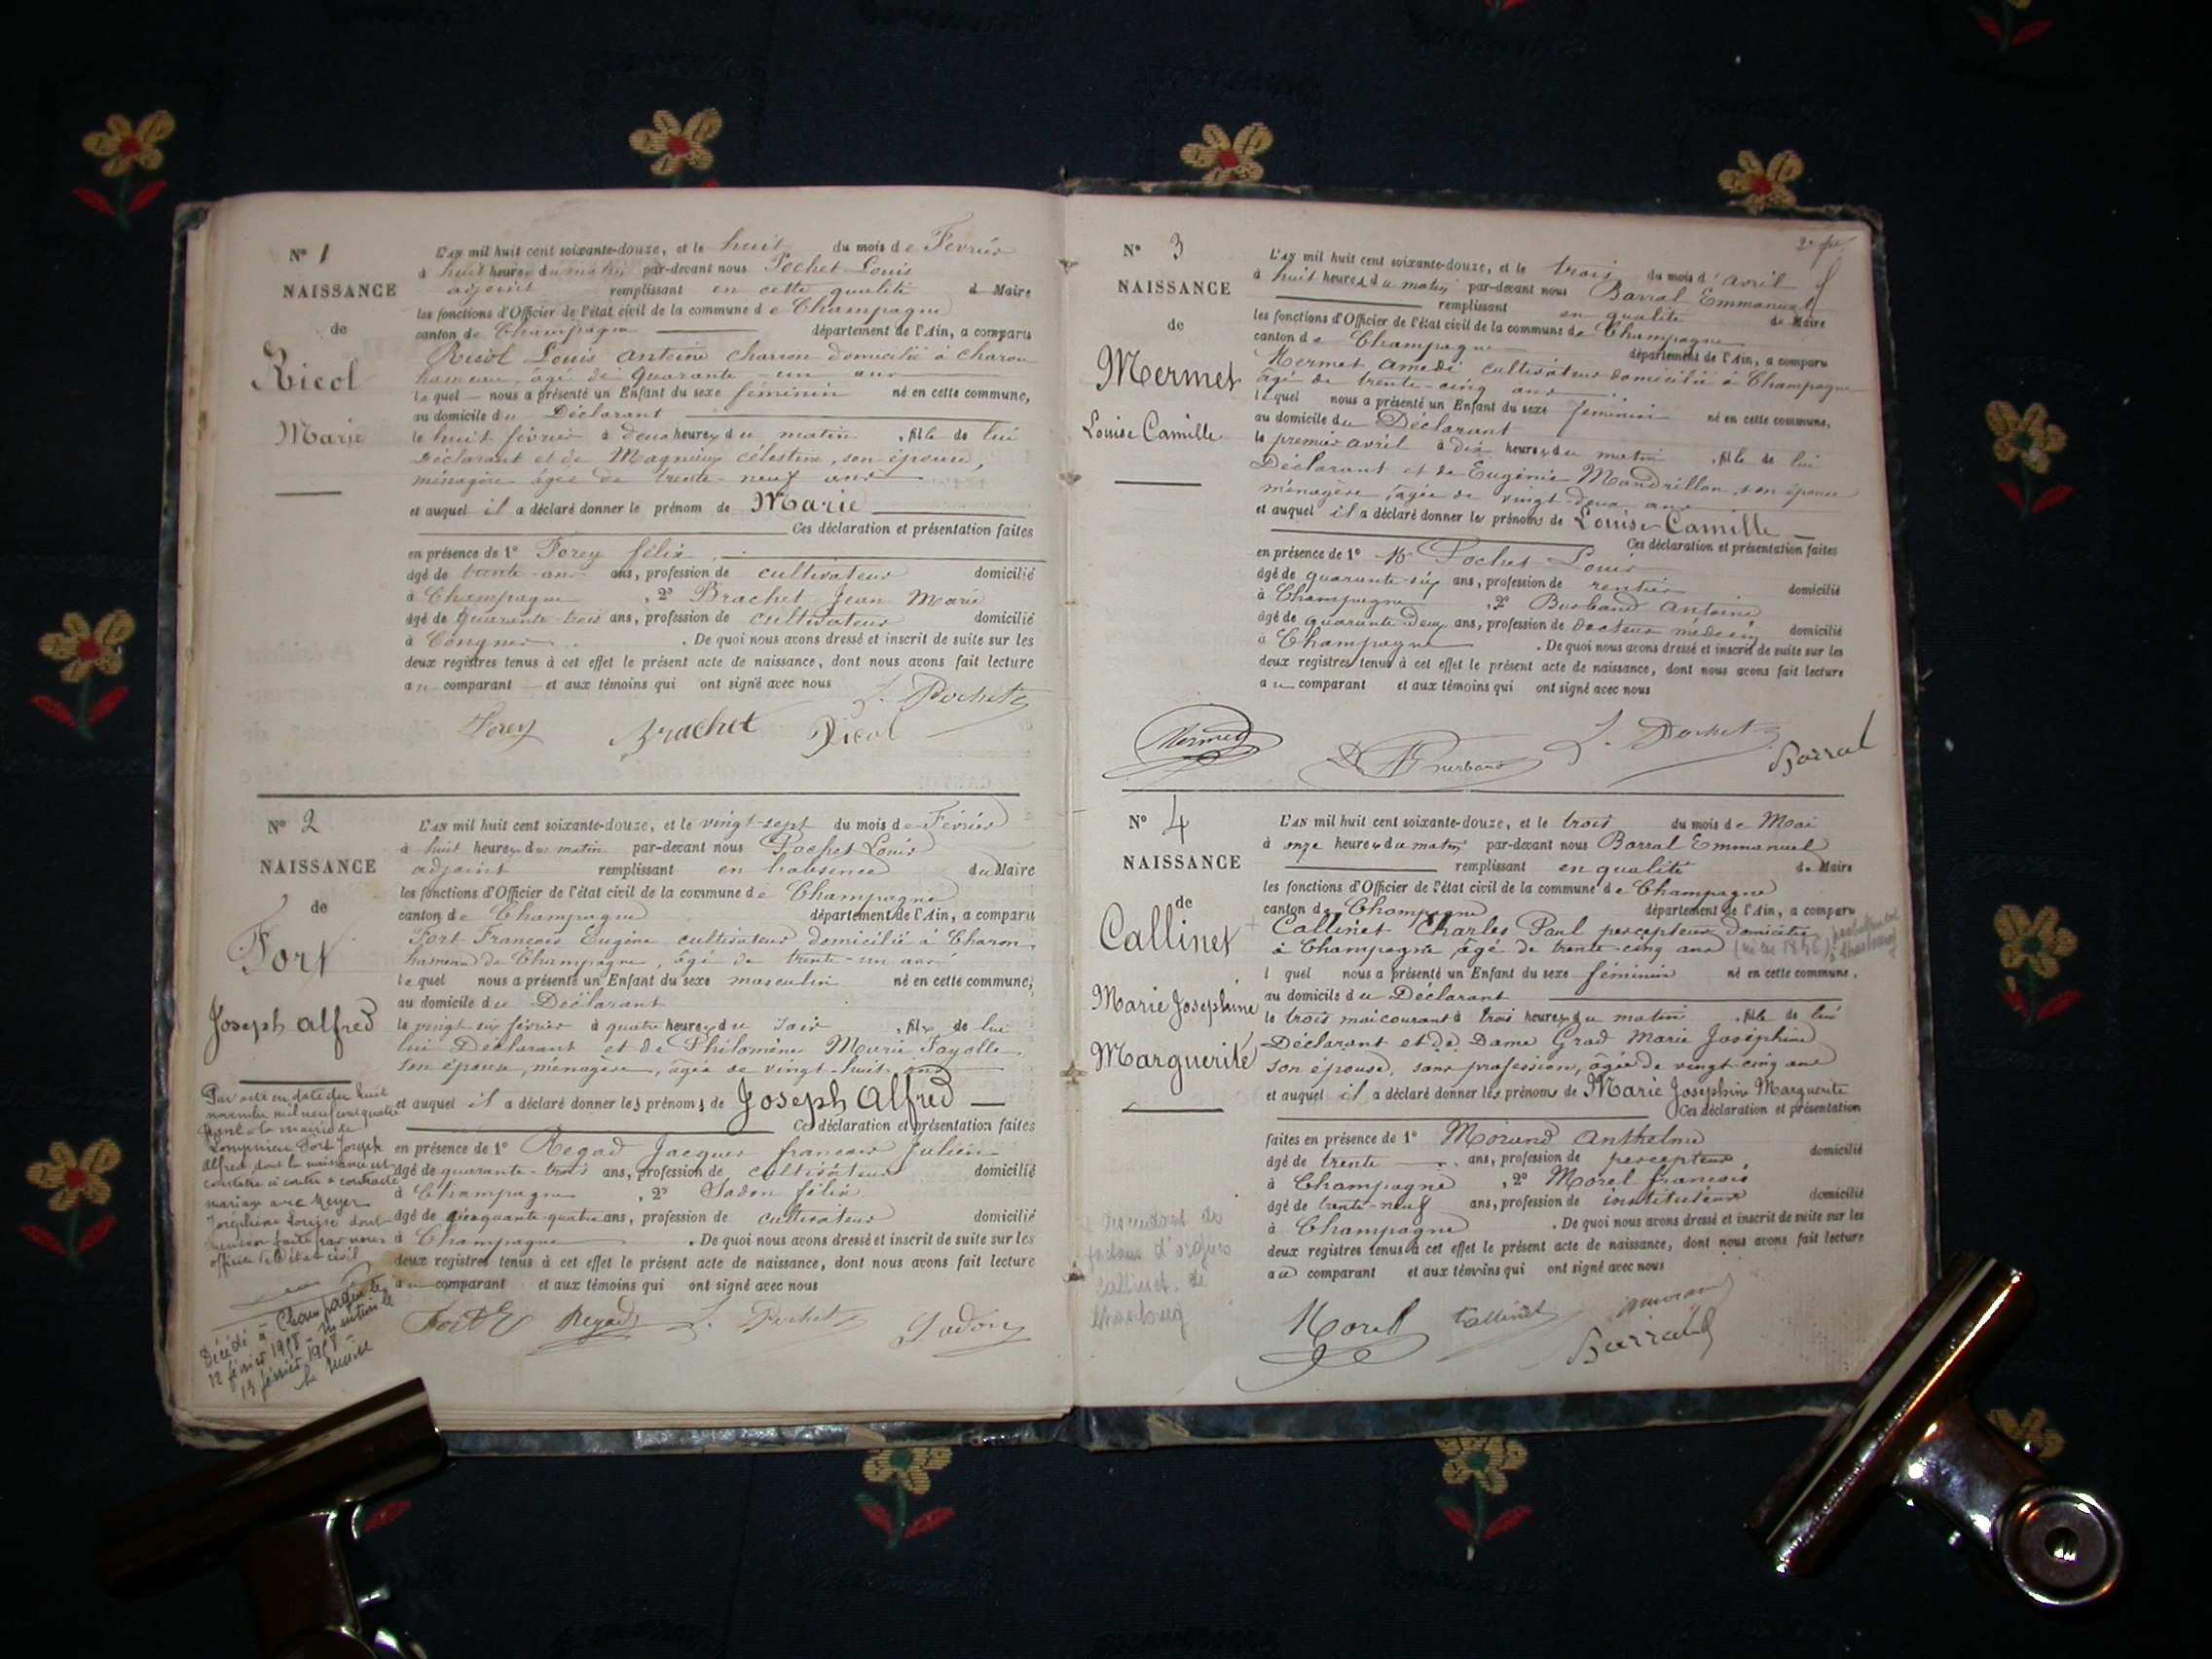 N° 1
NAISSANCE
de
Ricol
Marie
L'AN mil huit cent soixante-douze, et le huit du mois de Février
à huit heures du matin par-devant nous Pochet Louis
adjoint remplissant en cette qualité d Maire
les fonctions d'Officier de l'état civil de la commune de Champagne
canton de Champagne département de l'Ain, a comparu
Ricol Louis Antoine charron domicilié à Charon
hameau, âgé de Quarante-un ans
lequel nous a présenté un Enfant du sexe féminin né en cette commune,
au domicile du Déclarant
le huit février à deux heures du matin, fille de lui
Déclarant et de Magnieux Célestine, son épouse,
ménagère âgée de trente-neuf ans
et auquel il a déclaré donner le prénom de Marie
Ces déclaration et présentation faites
en présence de 1° Forey félix
âgé de trente ans, profession de cultivateur domicilié
à Champagne, 2° Brachet Jean Marie
âgé de quarante-trois ans, profession de cultivateur domicilié
à Songnes. De quoi nous avons dressé et inscrit de suite sur les
deux registres tenus à cet effet le présent acte de naissance, dont nous avons fait lecture
au comparant et aux témoins qui ont signé avec nous
L. Pochet
Forey Brachet Ricol
N° 2
NAISSANCE
de
Fort
Joseph Alfred
L'AN mil huit cent soixante-douze, et le vingt-sept du mois de Février
à huit heures du matin par-devant nous Pochet Louis
adjoint remplissant en l'absence du Maire
les fonctions d'Officier de l'état civil de la commune de Champagne
canton de Champagne département de l'Ain, a comparu
Fort François Eugène cultivateur domicilié à Charon
hameau de Champagne, âgé de trente-un ans
lequel nous a présenté un Enfant du sexe masculin né en cette commune,
au domicile du Déclarant
le vingt six février à quatre heures du soir, fils de lui
lui Déclarant et de Philomène Marie Fayolle
son épouse, ménagère, âgée de vingt-huit ans
et auquel il a déclaré donner les prénoms de Joseph Alfred
Ces déclaration et présentation faites
en présence de 1° Regad Jacques françois Julien
âgé de quarante-trois ans, profession de cultivateur domicilié
à Champagne, 2° Jadon félix
âgé de cinquante-quatre ans, profession de cultivateur domicilié
à Champagne. De quoi nous avons dressé et inscrit de suite sur les
deux registres tenus à cet effet le présent acte de naissance, dont nous avons fait lecture
au comparant et aux témoins qui ont signé avec nous
Fort E Regad L. Pochet Jadon
Par acte en date du huit
novembre mil neuf cent quatre
à la mairie de
Lompnieu Fort Joseph
Alfred dont la naissance est
constatée ci contre a contracté
mariage avec Meyer
Joséphine Louise dont
mention faite par nous
officier de l'état civil
Décédé à Champagne le
12 février
13 février
Le Maire
2e
N° 3
NAISSANCE
de
Mermet
Louise Camille
L'AN mil huit cent soixante-douze, et le trois du mois d'avril
à huit heures du matin par-devant nous Barral Emmanuel
remplissant en qualité de Maire
les fonctions d'Officier de l'état civil de la commune de Champagne
canton de Champagne département de l'Ain, a comparu
Mermet Amedé cultivateur domicilié à Champagne
âgé de trente-cinq ans
lequel nous a présenté un Enfant du sexe féminin né en cette commune,
au domicile du Déclarant
le premier avril à dix heures du matin, fille de lui
Déclarant et de Eugénie Mandrillon, son épouse
ménagère, âgée de vingt-deux ans
et auquel il a déclaré donner les prénoms de Louise Camille
Ces déclaration et présentation faites
en présence de 1° Mr Pochet Louis
âgé de quarante-six ans, profession de rentier domicilié
à Champagne, 2° Burband Antoine
âgé de quarante-deux ans, profession de docteur médecin domicilié
à Champagne. De quoi nous avons dressé et inscrit de suite sur les
deux registres tenus à cet effet le présent acte de naissance, dont nous avons fait lecture
au comparant et aux témoins qui ont signé avec nous
Mermet Burband L. Pochet Barral
N° 4
NAISSANCE
de
Callinet
Marie Josephine
Marguerite
L'AN mil huit cent soixante-douze, et le trois du mois de Mai
à onze heures du matin par-devant nous Barral Emmanuel
remplissant en qualité de Maire
les fonctions d'Officier de l'état civil de la commune de Champagne
canton de Champagne département de l'Ain, a comparu
Callinet Charles Paul percepteur domicilié
à Champagne âgé de trente-cinq ans
l quel nous a présenté un Enfant du sexe féminin né en cette commune,
au domicile du Déclarant
le trois mai courant à trois heures du matin, fille de lui
Déclarant et de Dame Grad Marie Joséphine
son épouse, sans profession, âgée de vingt-cinq ans
et auquel il a déclaré donner les prénoms de Marie Josephine Marguerite
Ces déclaration et présentation
faites en présence de 1° Morand Anthelme
âgé de trente ans, profession de percepteur domicilié
à Champagne, 2° Morel françois
âgé de trente-neuf ans, profession de instituteur domicilié
à Champagne. De quoi nous avons dressé et inscrit de suite sur les
deux registres tenus à cet effet le présent acte de naissance, dont nous avons fait lecture
au comparant et aux témoins qui ont signé avec nous
descendant de
facteurs d'orgues
Callinet de
Strasbourg
Morel Callinet Morand
Barral